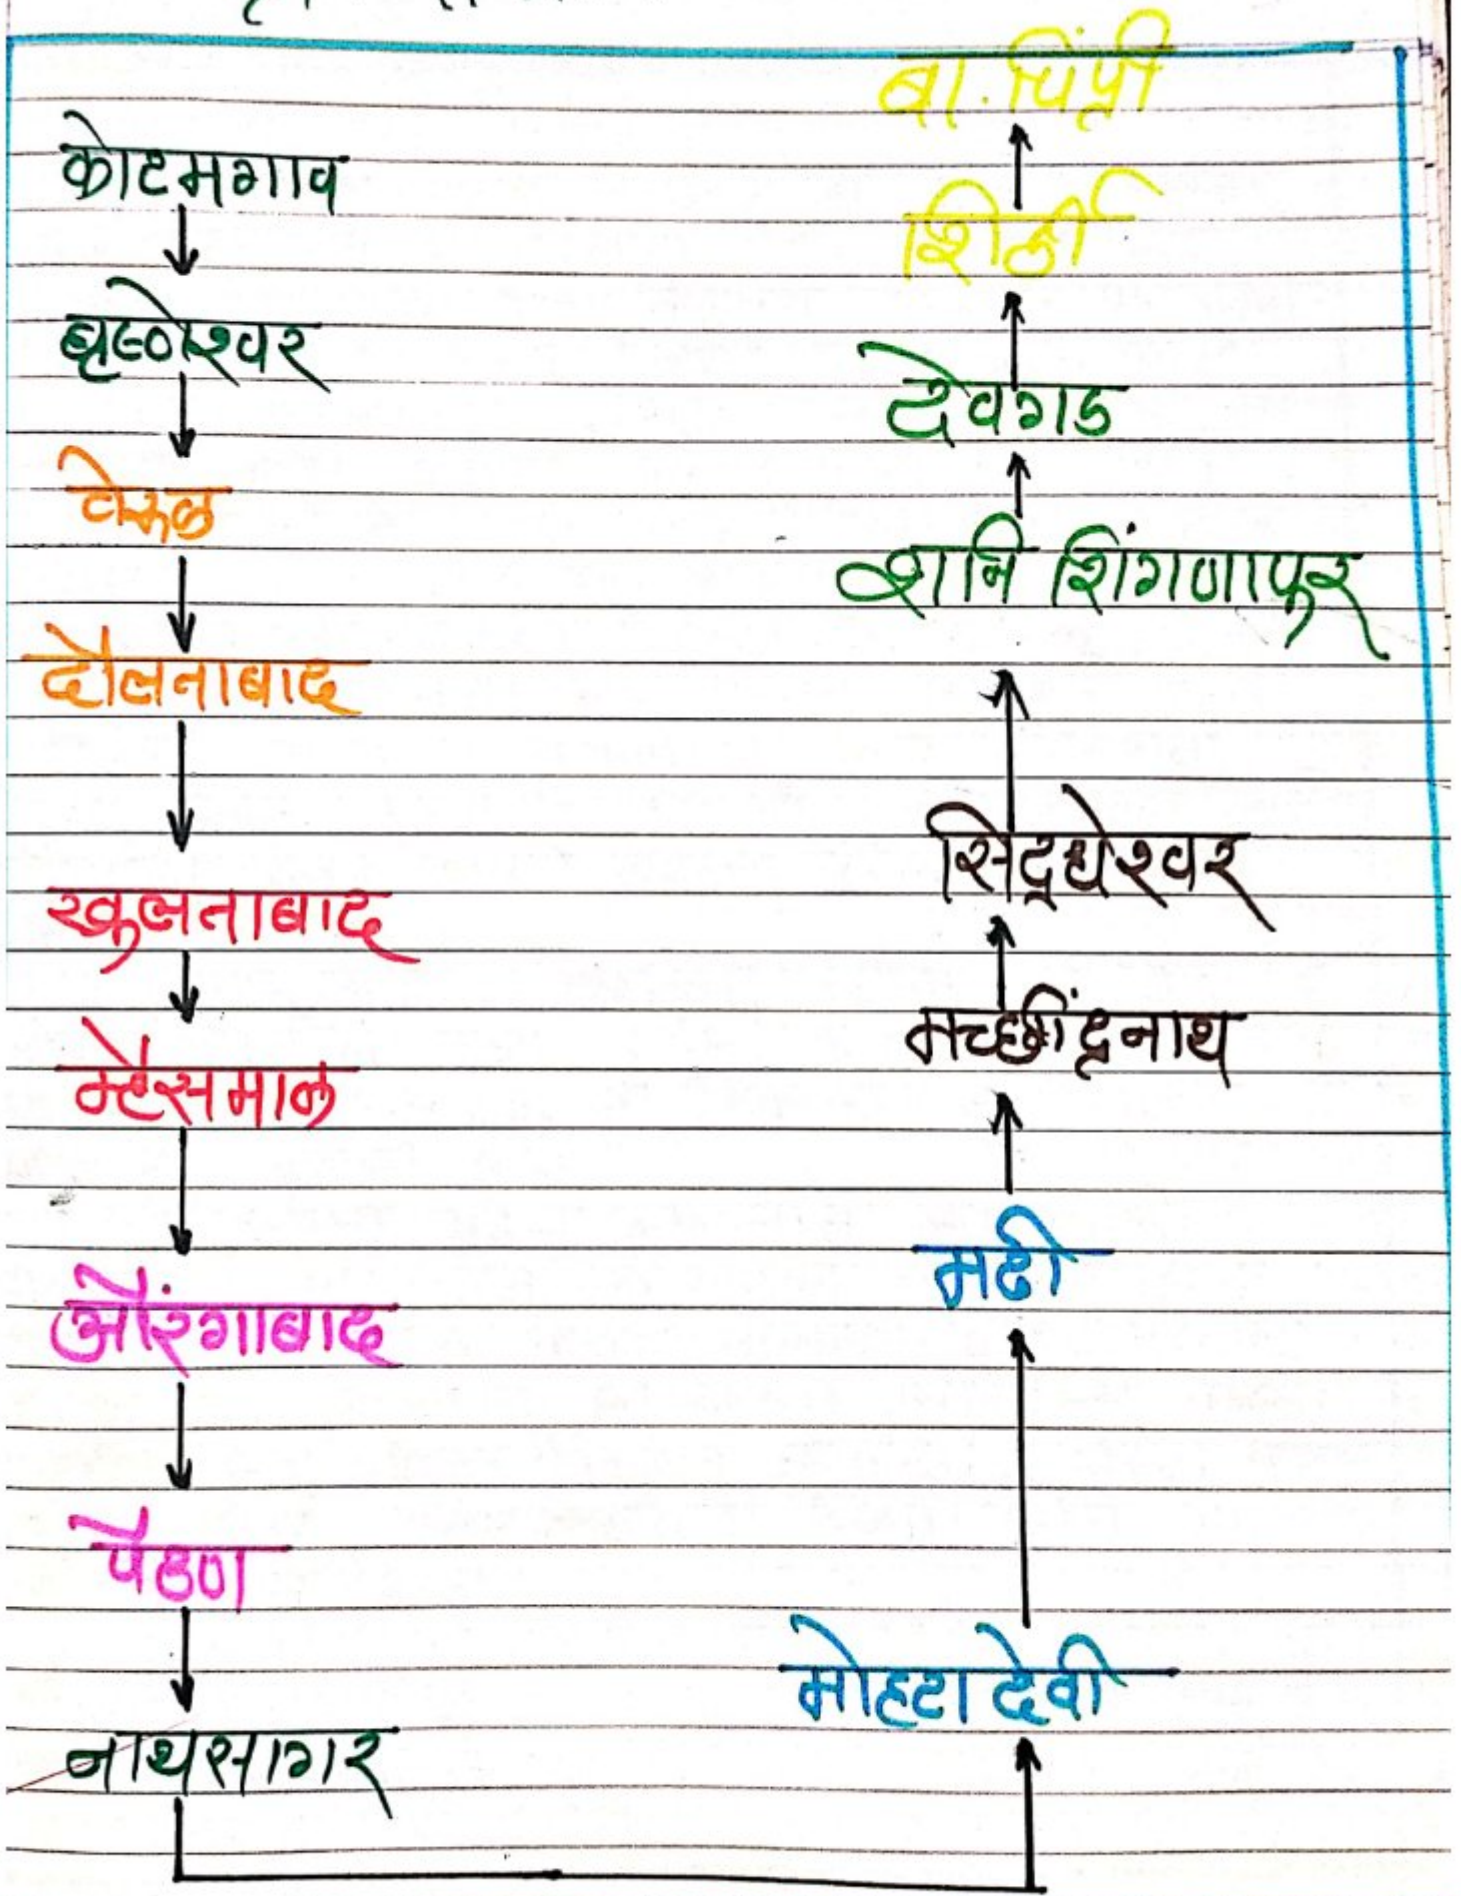 कोटमगाव
घृष्णेश्वर
वेरुळ
दौलताबाद
खुलताबाद
म्हैसमाळ
औरंगाबाद
पैठण
नाथसागर
मोहटा देवी
मढी
मच्छींद्रनाथ
सिद्धेश्वर
शनि शिंगणापुर
देवगड
शिर्डी
बा. पिंप्री